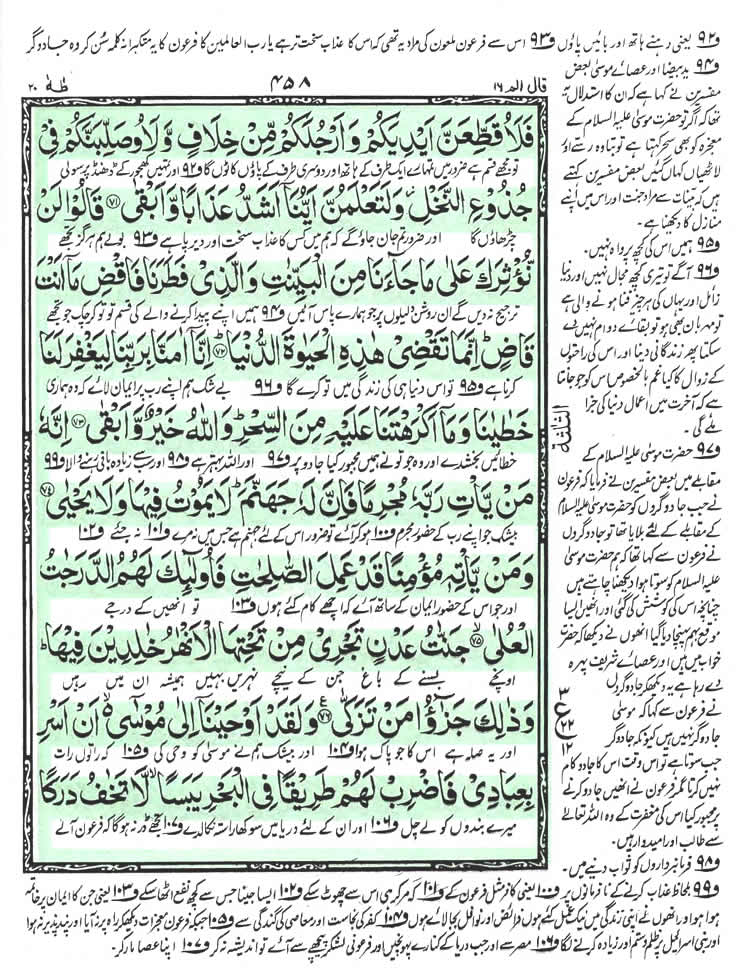 و۹۲ یعنی دہنے ہاتھ اور بائیں پاؤں و۹۳ اس سے فرعون ملعون کی مراد یہ تھی کہ اس کا عذاب سخت تر ہے یا رب العالمین کا فرعون کا یہ متکبرانہ کلمہ سُن کر وہ جادوگر
طٰهٰ ۲۰
۴۵۸
قال الم ۱۶
فَلَاُ قَطِّعَنَّ اَيْدِيَكُمْ وَاَرْجُلَكُمْ مِّنْ خِلَافٍ وَّلَاُوصَلِّبَنَّكُمْ فِيْ
تو مجھے قسم ہے ضرور میں تمہارے ایک طرف کے ہاتھ اور دوسری طرف کے پاؤں کاٹوں گا و۹۲ اور تمہیں کھجور کے ڈھنڈ پر سولی
جُذُوْعِ النَّخْلِ وَلَتَعْلَمُنَّ اَيُّنَآ اَشَدُّ عَذَابًا وَّاَبْقٰى ۷۱ قَالُوْا لَنْ
چڑھاؤں گا اور ضرور تم جان جاؤ گے کہ ہم میں کس کا عذاب سخت اور دیرپا ہے و۹۳ بولے ہم ہرگز تجھے
نُّؤْثِرَكَ عَلٰى مَا جَآءَنَا مِنَ الْبَيِّنٰتِ وَالَّذِيْ فَطَرَنَا فَاقْضِ مَآ اَنْتَ
ترجیح نہ دیں گے ان روشن دلیلوں پر جو ہمارے پاس آئیں و۹۴ ہمیں اپنے پیدا کرنے والے کی قسم تو تو کر چک جو تجھے
قَاضٍ اِنَّمَا تَقْضِيْ هٰذِهِ الْحَيٰوةَ الدُّنْيَا ۷۲ اِنَّآ اٰمَنَّا بِرَبِّنَا لِيَغْفِرَ لَنَا
کرنا ہے و۹۵ تو اس دنیا ہی کی زندگی میں تو کرے گا و۹۶ بے شک ہم اپنے رب پر ایمان لائے کہ وہ ہماری
خَطٰيٰنَا وَمَآ اَكْرَهْتَنَا عَلَيْهِ مِنَ السِّحْرِ وَاللّٰهُ خَيْرٌ وَّاَبْقٰى ۷۳ اِنَّهٗ
خطائیں بخشدے اور وہ جو تو نے ہمیں مجبور کیا جادو پر و۹۷ اور اللہ بہتر ہے و۹۸ اور سب سے زیادہ باقی رہنے والا و۹۹
مَنْ يَّاْتِ رَبَّهٗ مُجْرِمًا فَاِنَّ لَهٗ جَهَنَّمَ لَا يَمُوْتُ فِيْهَا وَلَا يَحْيٰى ۷۴
بیشک جو اپنے رب کے حضور مجرم و۱۰۰ ہو کر آئے تو ضرور اس کے لئے جہنم ہے جس میں نہ مرے و۱۰۱ نہ جئے و۱۰۲
وَمَنْ يَّاْتِهٖ مُؤْمِنًا قَدْ عَمِلَ الصّٰلِحٰتِ فَاُولٰٓئِكَ لَهُمُ الدَّرَجٰتُ
اور جو اس کے حضور ایمان کے ساتھ آئے کہ اچھے کام کئے ہوں و۱۰۳ تو انھیں کے درجے
الْعُلٰى ۷۵ جَنّٰتُ عَدْنٍ تَجْرِيْ مِنْ تَحْتِهَا الْاَنْهٰرُ خٰلِدِيْنَ فِيْهَا
اونچے بسنے کے باغ جن کے نیچے نہریں بہیں ہمیشہ ان میں رہیں
وَذٰلِكَ جَزٰٓؤُا مَنْ تَزَكّٰى ۷۶ وَلَقَدْ اَوْحَيْنَآ اِلٰى مُوْسٰٓى اَنْ اَسْرِ
اور یہ صلہ ہے اس کا جو پاک ہوا و۱۰۴ اور بیشک ہم نے موسیٰ کو وحی کی و۱۰۵ کہ راتوں رات
بِعِبَادِيْ فَاضْرِبْ لَهُمْ طَرِيْقًا فِى الْبَحْرِ يَبَسًا لَّا تَخٰفُ دَرَكًا
میرے بندوں کو لے چل و۱۰۶ اور ان کے لئے دریا میں سوکھا راستہ نکال دے و۱۰۷ تجھے ڈر نہ ہو گا کہ فرعون آلے
و۹۴ ید بیضا اور عصائے موسیٰ بعض
مفسرین نے کہا ہے کہ ان کا استدلال یہ
تھا کہ اگر تو حضرت موسیٰ علیہ السلام کے
معجزہ کو بھی سحر کہتا ہے تو بتا وہ رسے اور
لاٹھیاں کہاں گئیں بعض مفسرین کہتے
ہیں کہ بینات سے مراد جنت اور اس میں اپنے
منازل کا دیکھنا ہے۔
و۹۵ ہمیں اس کی کچھ پرواہ نہیں۔
و۹۶ آگے تو تیری کچھ مجال نہیں اور دنیا
زائل اور یہاں کی ہر چیز فنا ہونے والی ہے
تو مہربان بھی ہو تو بقائے دوام نہیں دے
سکتا پھر زندگانی دنیا اور اس کی راحتوں
کے زوال کا کیا غم بالخصوص اس کو جو جانتا
ہے کہ آخرت میں اعمال دنیا کی جزا
ملے گی۔
و۹۷ حضرت موسیٰ علیہ السلام کے
مقابلے میں بعض مفسرین نے فرمایا کہ فرعون
نے جب جادوگروں کو حضرت موسیٰ علیہ السلام
کے مقابلے کے لئے بلایا تھا تو جادوگروں
نے فرعون سے کہا تھا کہ ہم حضرت موسیٰ
علیہ السلام کو سوتا ہوا دیکھنا چاہتے ہیں
چنانچہ اس کی کوشش کی گئی اور انھیں ایسا
موقع بہم پہنچا دیا گیا انھوں نے دیکھا کہ حضرت
خواب میں ہیں اور عصائے شریف پہرہ
دے رہا ہے یہ دیکھ کر جادوگروں
نے فرعون سے کہا کہ موسیٰ
جادوگر نہیں ہیں کیونکہ جادوگر
جب سوتا ہے تو اس وقت اس کا جادو کام
نہیں کرتا مگر فرعون نے انھیں جادو کرنے
پر مجبور کیا اس کی مغفرت کے وہ اللہ تعالیٰ
سے طالب اور امیدوار ہیں۔
و۹۸ فرمانبرداروں کو ثواب دینے میں۔
الثلثة
۳
ع
۲۲
۱۲
و۹۹ بلحاظ عذاب کرنے کے نافرمانوں پر و۱۰۰ یعنی کافر مثل فرعون کے و۱۰۱ کہ مر کر ہی اس سے چھوٹ سکے و۱۰۲ ایسا جینا جس سے کچھ نفع اٹھا سکے و۱۰۳ یعنی جن کا ایمان پر خاتمہ
ہوا ہو اور انھوں نے اپنی زندگی میں نیک عمل کئے ہوں فرائض اور نوافل بجا لائے ہوں و۱۰۴ کفر کی نجاست اور معاصی کی گندگی سے و۱۰۵ جبکہ فرعون معجزات دیکھ کر راہ پر نہ آیا اور پند پذیر نہ ہوا
اور بنی اسرائیل پر ظلم و ستم اور زیادہ کرنے لگا و۱۰۶ مصر سے اور جب دریا کے کنارے پہونچیں اور فرعونی لشکر پیچھے سے آئے تو اندیشہ نہ کر و۱۰۷ اپنا عصا مار کر۔